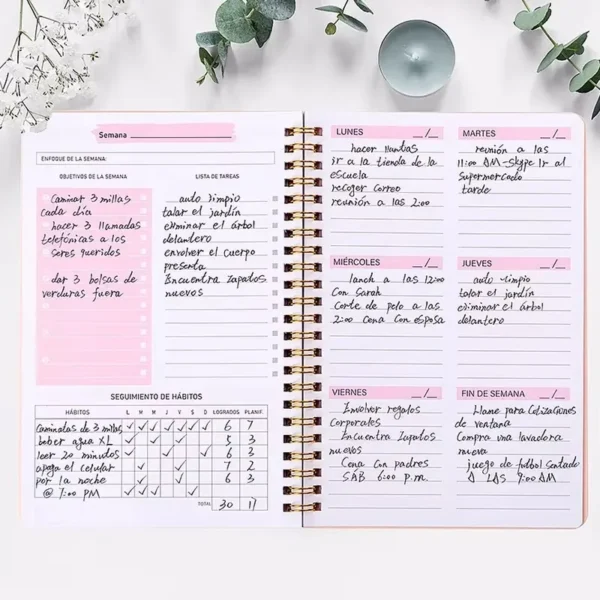 Semana
ENFOQUE DE LA SEMANA:
OBJETIVOS DE LA SEMANA
Caminar 3 millas
cada día
hacer 3 llamadas
telefónicas a los
seres queridos
dar 3 bolsas de
verduras fuera
LISTA DE TAREAS
auto limpio
talar el jardín
eliminar el árbol
delantero
envolver el cuerpo
presenta
Encuentra zapatos
nuevos
SEGUIMIENTO DE HÁBITOS
HÁBITOS L M M J V S D LOGRADOS PLANIF.
Caminatas de 3 millas ✓ ✓ ✓ ✓ ✓ ✓ 6 7
beber agua XL 5 3
leer 20 minutos 6 3
apaga el celular 7 2
por la noche 6 3
@ 7:00 PM
TOTAL 30 17
LUNES __/__
hacer llantas
ir a la tienda de la
escuela
recoger correo
reunión a las 2:00
MARTES __/__
reunión a las
11:00 AM-skype Ir al
supermercado
tarde
MIÉRCOLES __/__
lanch a las 12:00
Con Sarah
Corte de pelo a las
2:00 Cena Con esposa
JUEVES __/__
auto limpio
talar el jardín
eliminar el árbol
delantero
VIERNES __/__
Involver regalos
Corporales
Encuentra Zapatos
nuevos
Cena con padres
SAB 6:00 p.m.
FIN DE SEMANA __/__
Llame para Cotizaciones
de ventana
Compra una lavadora
nueva
juego de futbol sentado
A LAS 9:00 AM